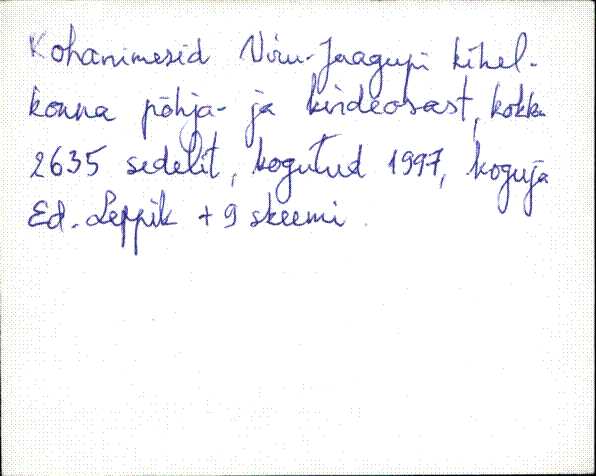 Kohanimesid Viru-Jaagupi kihel-
konna põhja- ja kirdeosast, kokku
2635 sedelit, kogutud 1997, koguja
Ed. Leppik + 9 skeemi.